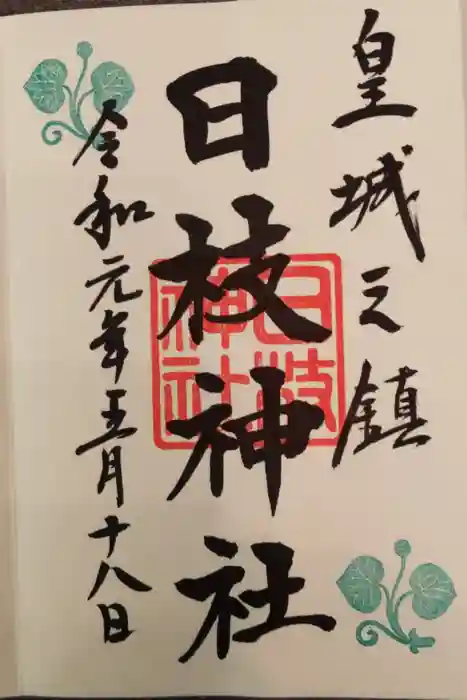 皇城之鎮
日枝神社
日枝神社
令和元年五月十八日